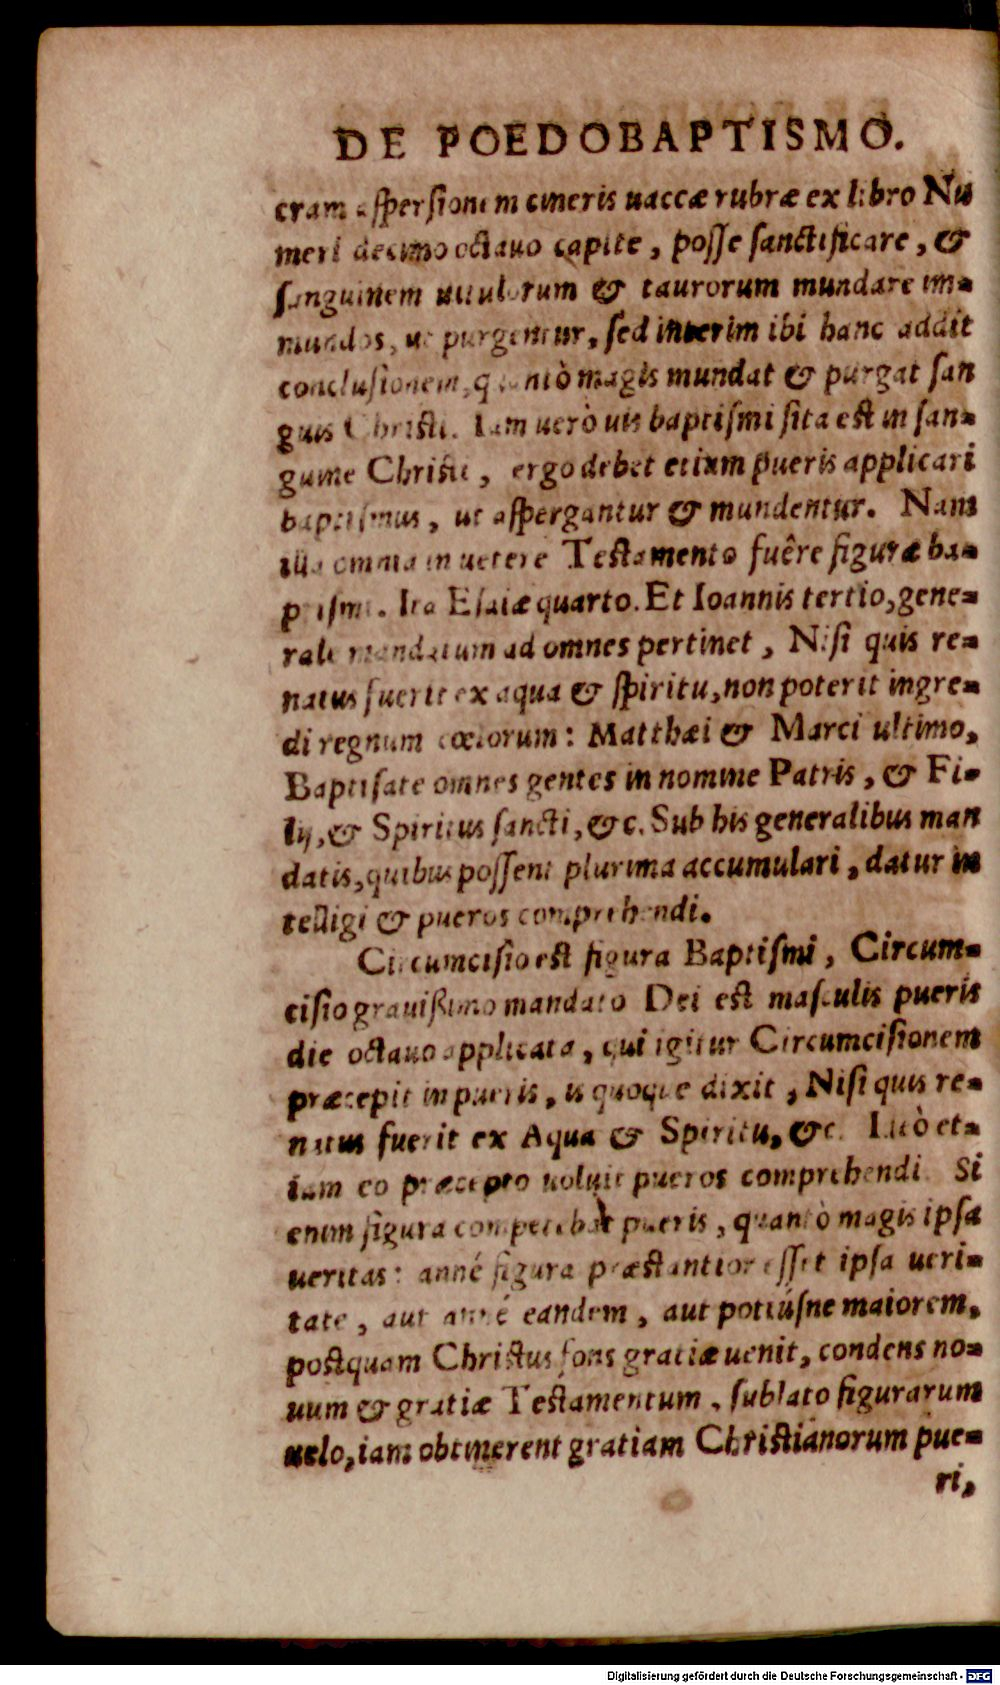 DE POEDOBAPTISMO.
cram aſperſionem cineris uaccæ rubræ ex libro Nu
meri decimo octauo capite, poſſe ſanctificare, &
ſanguinem uitulorum & taurorum mundare im-
mundos, ut purgentur, ſed interim ibi hanc addit
concluſionem, quantò magis mundat & purgat ſan
guis Chriſti. Iam uerò uis baptiſmi ſita est in ſan-
guine Chriſti, ergo debet etiam pueris applicari
baptiſmus, ut aſpergantur & mundentur. Nam
illa omnia in uetere Teſtamento fuêre figuræ ba-
ptiſmi. Ita Eſaiæ quarto. Et Ioannis tertio, gene-
rale mandatum ad omnes pertinet, Niſi quis re-
natus fuerit ex aqua & ſpiritu, non poterit ingre-
di regnum cœlorum: Matthæi & Marci ultimo,
Baptiſate omnes gentes in nomine Patris, & Fi-
lij, & Spiritus ſancti, &c. Sub his generalibus man
datis, quibus poſſent plurima accumulari, datur in
telligi & pueros comprehendi.
Circumciſio est figura Baptiſmi, Circum-
ciſio grauiſsimo mandato Dei est maſculis pueris
die octauo applicata, qui igitur Circumciſionem
præcepit in pueris, is quoque dixit, Niſi quis re-
natus fuerit ex Aqua & Spiritu, &c. Ideò et-
iam eo præcepto uoluit pueros comprehendi. Si
enim figura competebat pueris, quantò magis ipſa
ueritas: anné figura præſtantior eſſet ipſa ueri-
tate, aut anné eandem, aut potiúſne maiorem,
poſtquam Chriſtus fons gratiæ uenit, condens no-
uum & gratiæ Teſtamentum, ſublato figurarum
uelo, iam obtinerent gratiam Chriſtianorum pue-
ri,
Digitalisierung gefördert durch die Deutsche Forschungsgemeinschaft - DFG